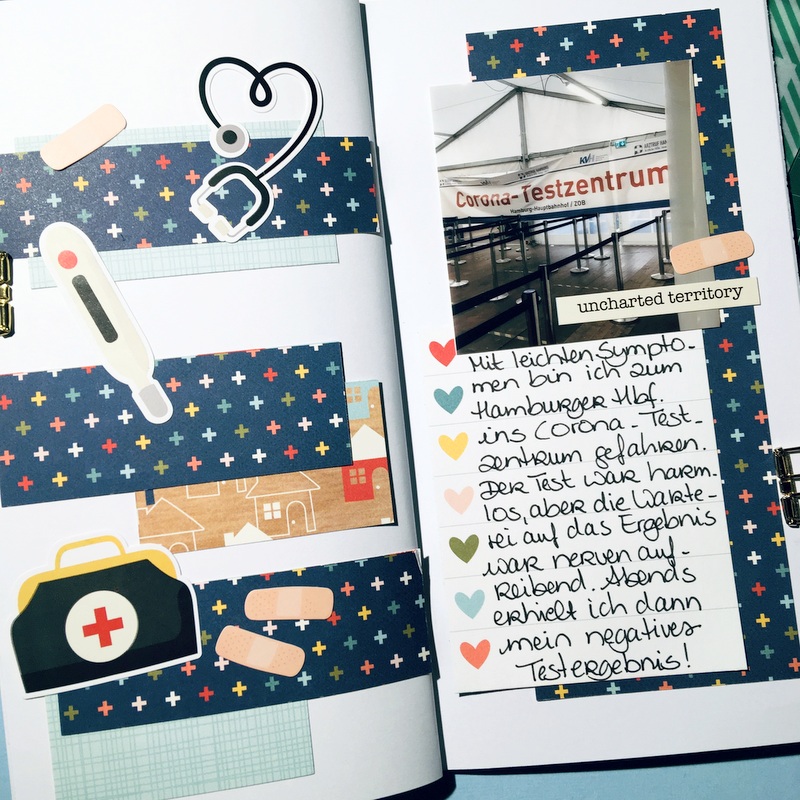 KVH
Corona-Testzentrum
Hamburg-Hauptbahnhof / ZOB
uncharted territory
Mit leichten Sympto-
men bin ich zum
Hamburger Hbf.
ins Corona-Test-
zentrum gefahren.
Der Test war harm-
los, aber die Warte-
rei auf das Ergebnis
war nerven auf-
reibend. Abends
erhielt ich dann
mein negatives
Testergebnis!